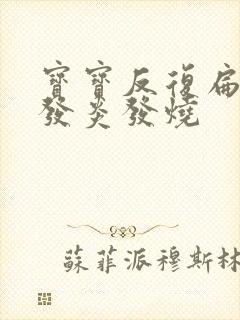 寶寶反復扁
發炎發燒
蘇菲派穆斯林